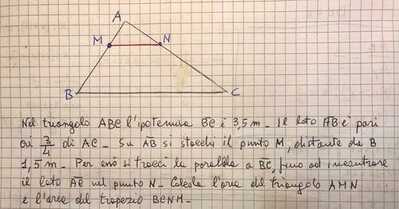 A
M N
B C
Nel triangolo ABC l'ipotenusa BC è 3,5 m - Il lato AB è pari
ai 3/4 di AC - Su AB si stacchi il punto M, distante da B
1,5 m - Per esso si tracci la parallela a BC, fino ad incontrare
il lato AC nel punto N - Calcola l'area del triangolo AMN
e l'area del trapezio BCNM -